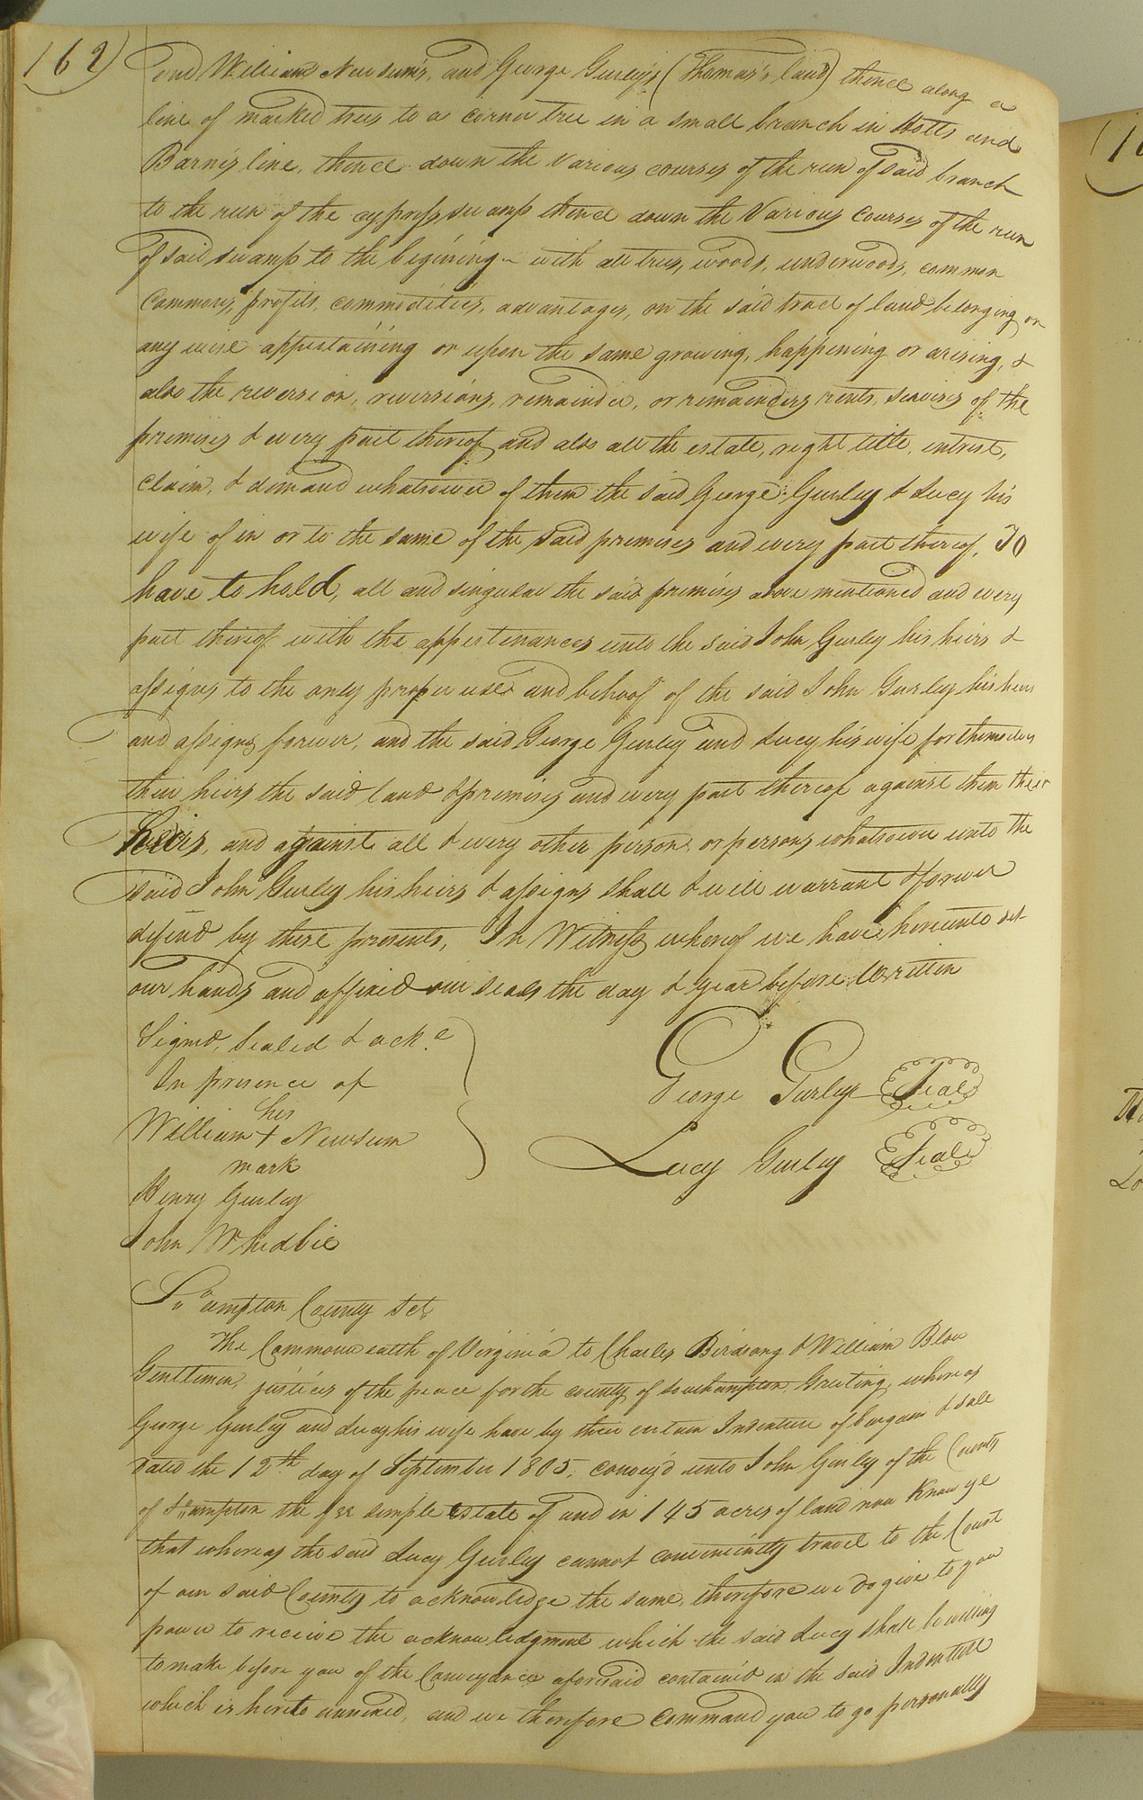 (162)
and William Newsum's, and George Gurley's (Thomas's land) thence along a
line of marked trees to a corner tree in a small branch in Holts and
Barn's line, thence down the various courses of the run of said branch
to the run of the cypress swamp thence down the Various courses of the run
of said swamp to the begining with all trees, woods, underwoods, common
Commons, profits, commodities, advantages, on the said tract of land belonging or
any wise appertaining or upon the same growing, happening or arising, &
also the reversion, reversions, remainder, or remainders rents, servises of the
premises & every part thereof, and also all the estate, right title, intrest,
claim, & demand whatsoever of them the said George Gurley & Lucy his
wife of in or to the same of the said premises and every part thereof, To
have to hold, all and singular the said premises above mentioned and every
part thereof with the appertenances unto the said John Gurley his heirs &
assigns to the only proper use and behoof of the said John Gurley his heirs
and assigns forever, and the said George Gurley and Lucy his wife for themselves
their heirs the said land & premises and every part thereof against them their
heirs, and against all & every other person or persons whatsoever unto the
said John Gurley his heirs & assigns shall & will warrant & forever
defend by these presents, In Witness whereof we have hereunto set
our hands and affixed our seals the day & year before Written
Signed, sealed & ack.e
In presence of
his
William + Newsum
mark
Henry Gurley
John Whedbie
George Gurley Seal
Lucy Gurley Seal
So ampton County Sct
The Commonwealth of Virginia to Charles Birdsong & William Blow
Gentlemen, justices of the peace for the county of Southampton Greeting, whereas
George Gurley and Lucy his wife have by their certain Indenture of bargain & sale
dated the 12th day of September 1805, convey'd unto John Gurley of the County
of So ampton the fee simple estate of and in 145 acres of land now Know ye
that whereas the said Lucy Gurley cannot conveniently travel to the Court
of our said County to acknowledge the same, therefore we do give to you
power to receive the acknowledgment which the said Lucy shall be willing
to make before you of the Conveyance aforesaid contain'd in the said Indenture
which is hereto annexed, and we therefore command you to go personally